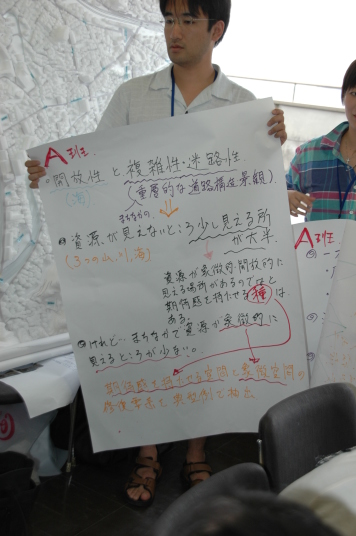 A班
・開放性と複雑性・迷路性
(海)
(重層的な道路構造・景観)
まちなかの
資源が見えないところ少し見える所
が大半
(3つのれい、海)
資源が象徴的・開放的に
見える場所があるのではと
期待感を持たせる種は
ある。
けれど… まちなかで資源が象徴的に
見えるところが少ない。
期待感を持たせる空間と象徴空間の
A3班